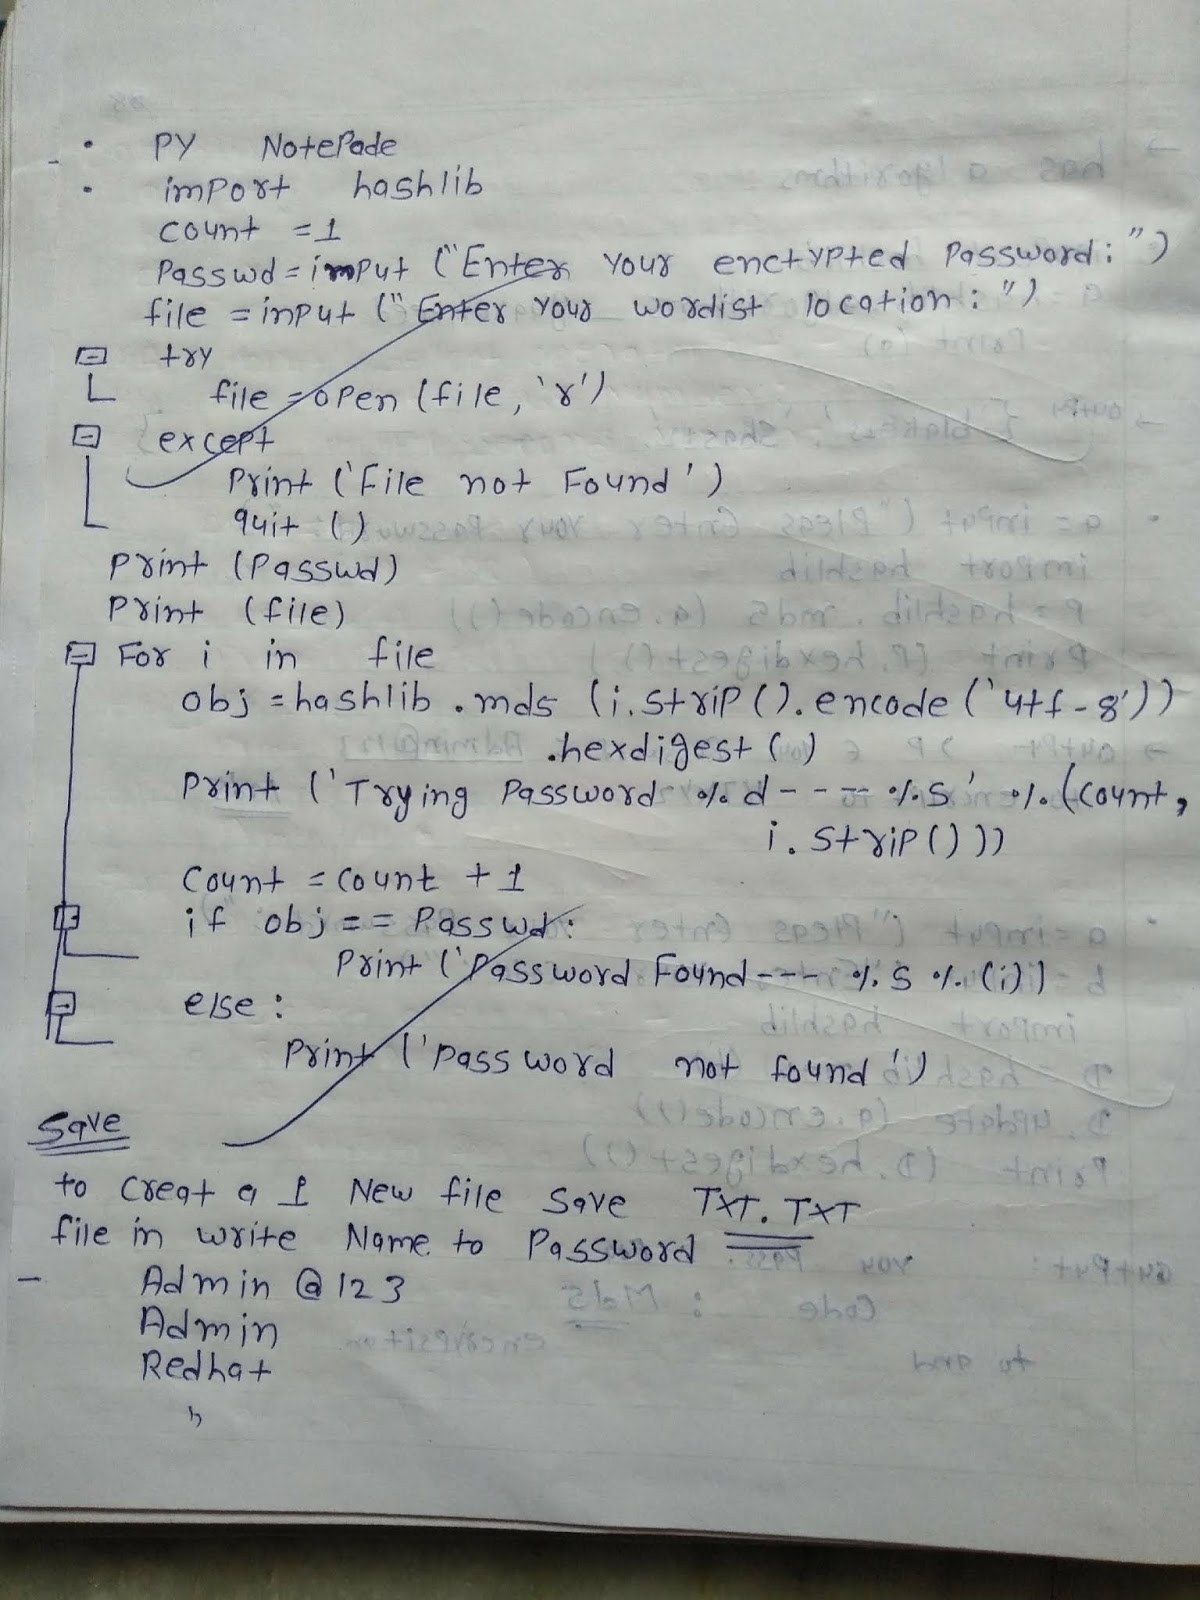 • PY NotePade
• import hashlib
count = 1
Passwd = input ("Enter Your enctypted Password : ")
file = input ("Enter Your wordist location : ")
try
file = open (file, 'r')
except
Print ('File not Found')
quit ()
Print (Passwd)
Print (file)
For i in file
obj = hashlib . md5 (i.strip().encode('utf-8'))
.hexdigest()
Print ('Trying Password % d - - - - % s' % (count,
i. strip()))
Count = count + 1
if obj == Passwd :
Print ('Password Found - - - - % s % (i))
else :
Print ('Password not found')
Save
to Creat a 1 New file Save TXT.TXT
file in write Name to Password
- Admin @ 123
Admin
Redhat